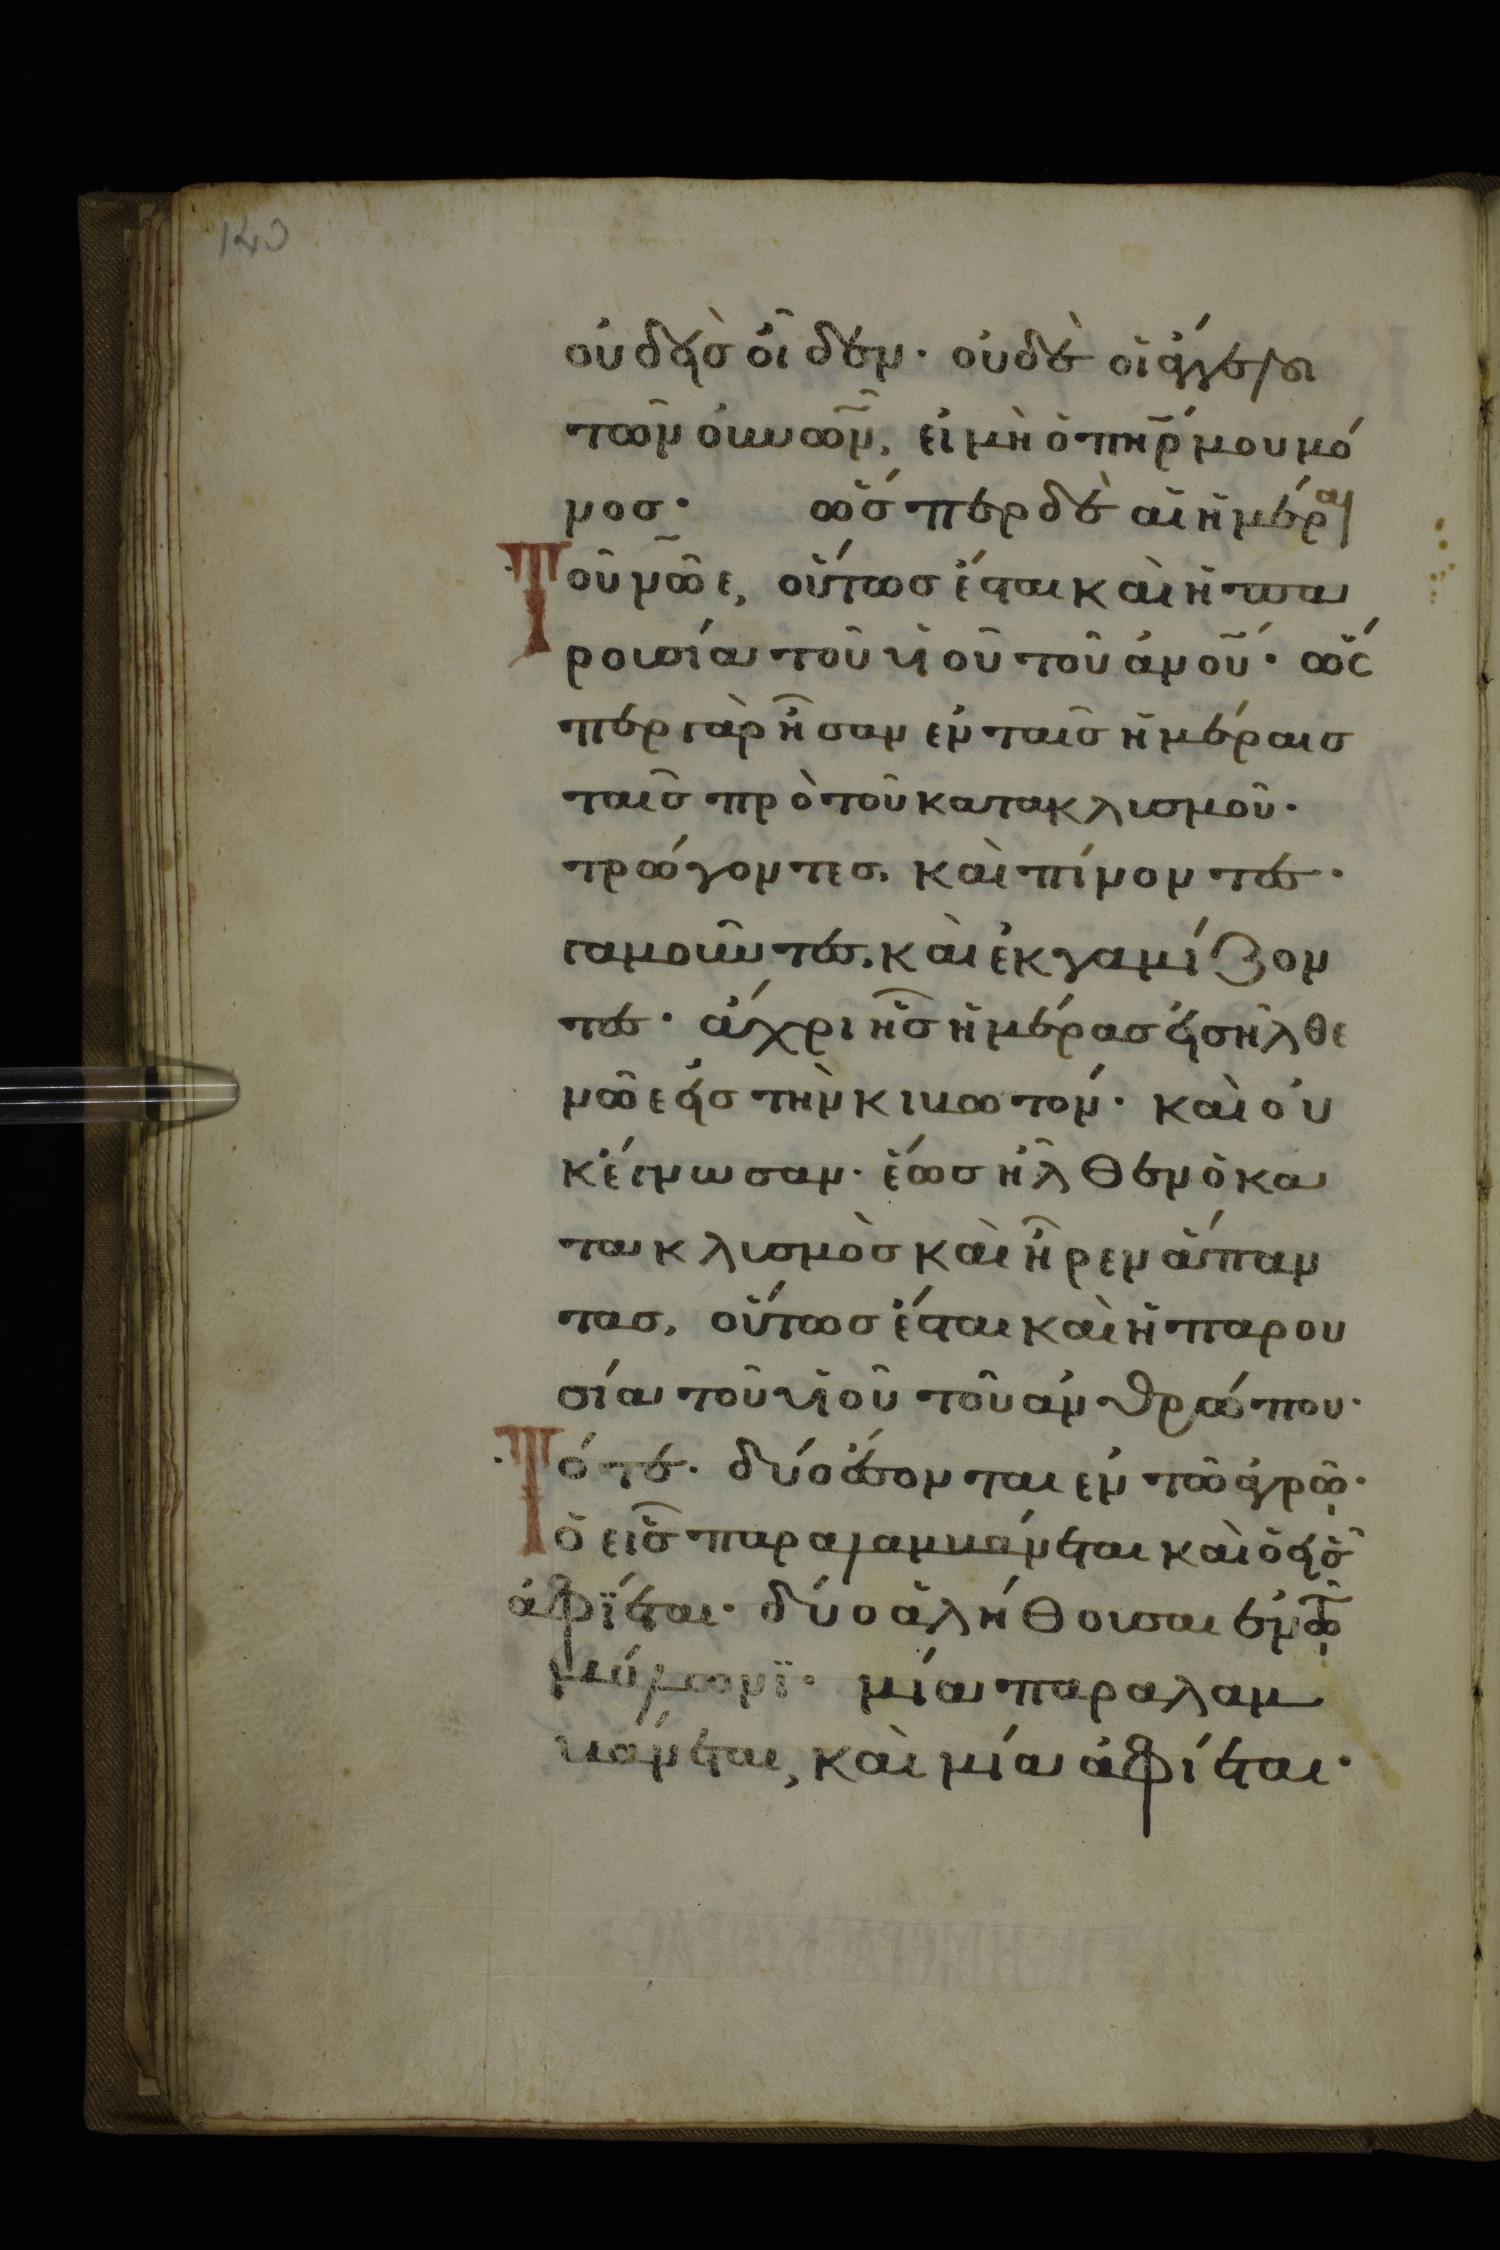 143
οὐδεὶσ οἶδεν· οὐδὲ οἱ ἄγγελοι
τῶν οὐνῶν, εἰ μὴ ὁ πῆρ μου μό
νοσ· ὥσπερ δὲ αἱ ἡμέραι
τοῦ νῶε, οὕτωσ έσται καὶ ἡ πα
ρουσία τοῦ υἱοῦ τοῦ ἀνοῦ· ὥσ
περ γὰρ ἦσαν ἐν ταῖσ ἡμέραισ
ταῖσ πρὸ τοῦ κατακλισμοῦ·
τρώγοντεσ, καὶ πίνοντεσ·
γαμοῦντεσ, καὶ ἐκγαμίζον
τεσ· ἄχρι ἧσ ἡμέρασ εἰσῆλθε
νῶε εἰσ τὴν κιβωτόν· καὶ οὐ
κ έγνωσαν· ἕωσ ἦλθεν ὁ κα
τακλισμὸσ καὶ ἦρεν ἅπαν
τασ, οὕτωσ έσται καὶ ἡ παρου
σία τοῦ υἱοῦ τοῦ ἀνθρώπου·
Τότε· δύο έσονται ἐν τῶ ἀγρῶ·
ὁ εἷσ παραλαμβάνεται καὶ ὁ εἷσ
ἀφϊεται· δύο ἀλήθουσαι ἐν τῶ
μύλωνϊ· μία παραλαμ
βάνεται, καὶ μία ἀφίεται·